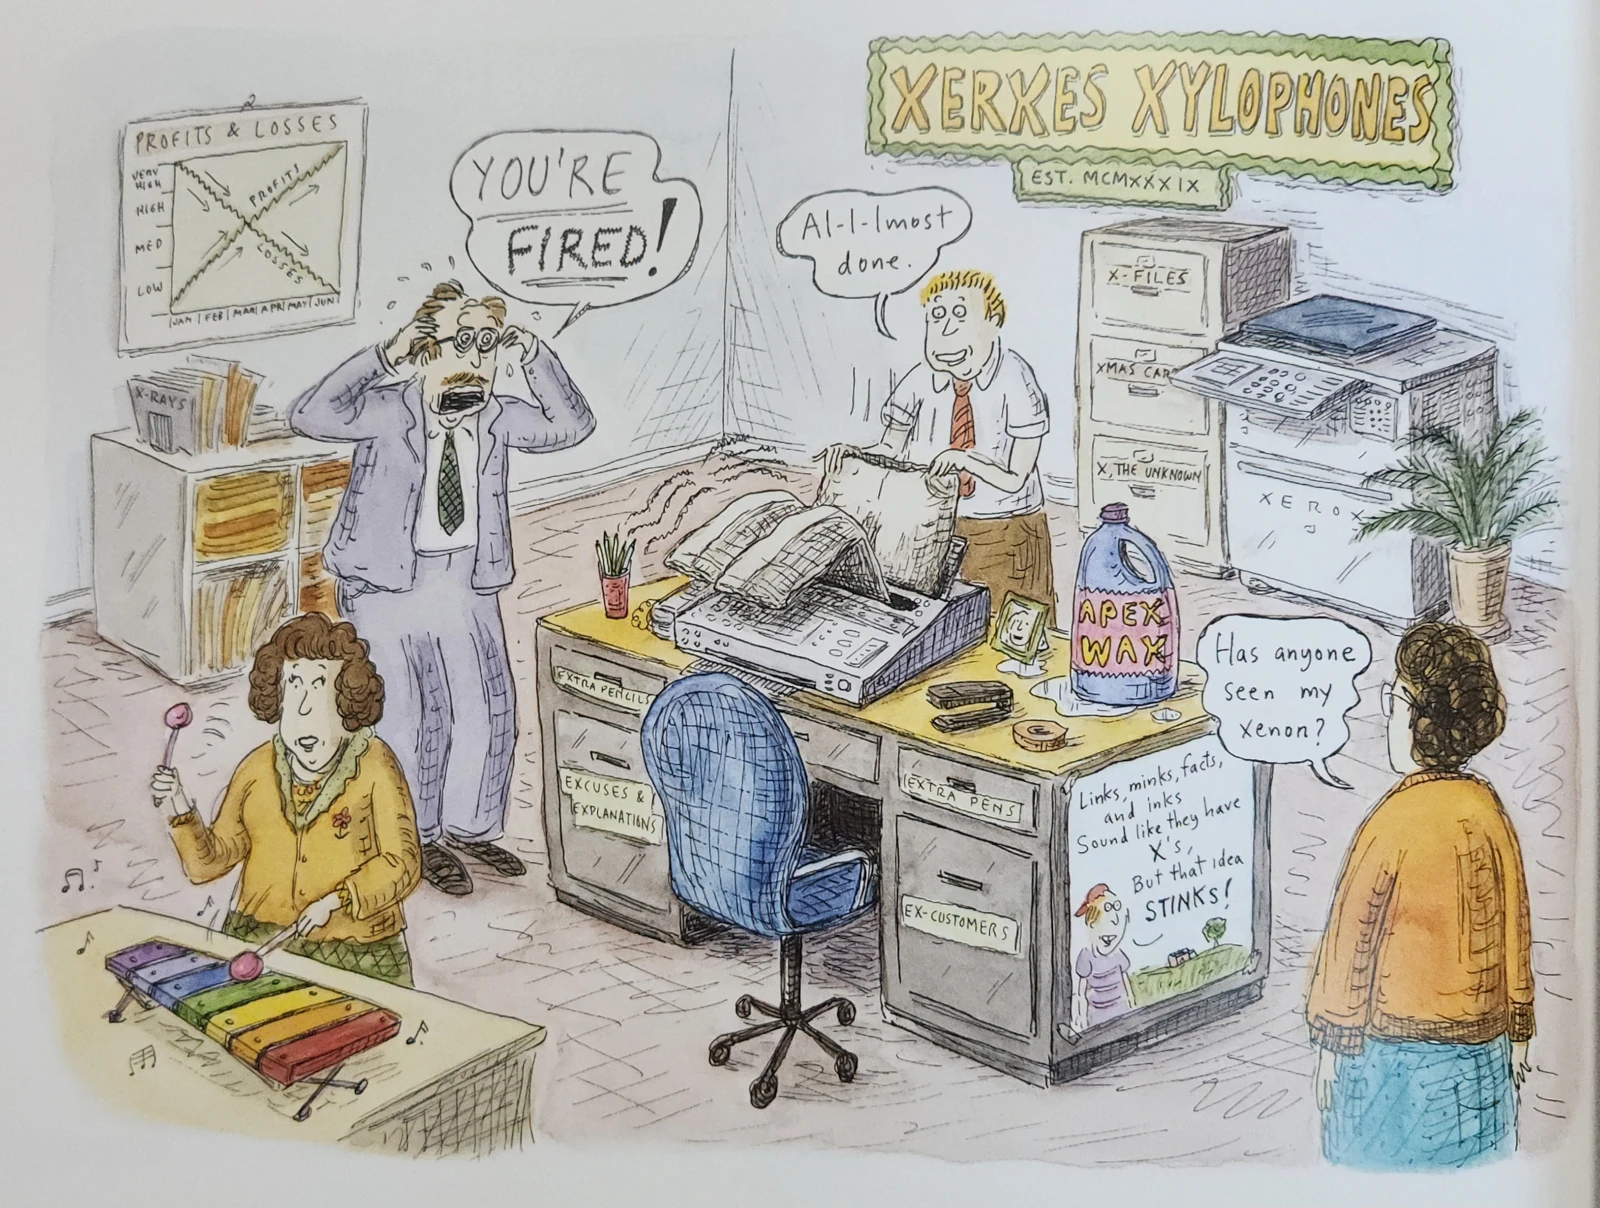 PROFITS & LOSSES
VERY
HIGH
HIGH
MED
LOW
PROFITS
LOSSES
JAN | FEB | MAR | APR | MAY | JUN
YOU'RE
FIRED!
Al-l-lmost
done.
XERXES XYLOPHONES
EST. MCMXXXIX
X-FILES
XMAS CAR
X, THE UNKNOWN
XEROX
X-RAYS
APEX
WAX
Has anyone
seen my
xenon?
EXTRA PENCILS
EXCUSES &
EXPLANATIONS
EXTRA PENS
EX-CUSTOMERS
Links, minks, facts,
and inks
Sound like they have
X's,
But that idea
STINKS!